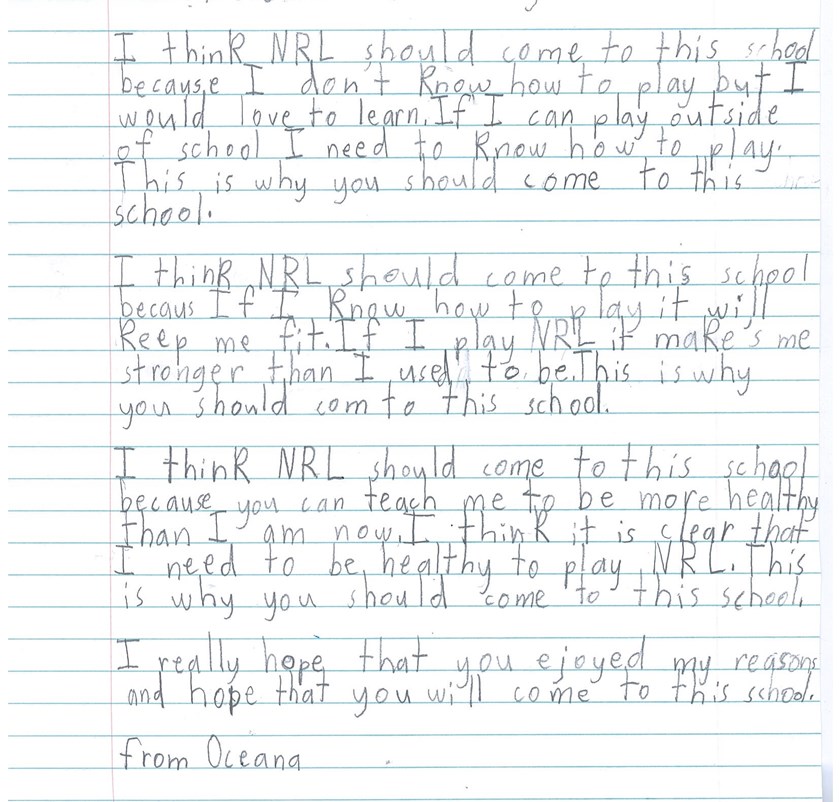 I think NRL should come to this school
because I don't know how to play but I
would love to learn. If I can play outside
of school I need to know how to play.
This is why you should come to this
school.
I think NRL should come to this school
becaus If I know how to play it will
keep me fit. If I play NRL it make's me
stronger than I used to be. This is why
you should com to this school.
I think NRL should come to this school
because you can teach me to be more healthy
than I am now. I think it is clear that
I need to be healthy to play NRL. This
is why you should come to this school.
I really hope that you ejoyed my reasons
and hope that you will come to this school.
from Oceana